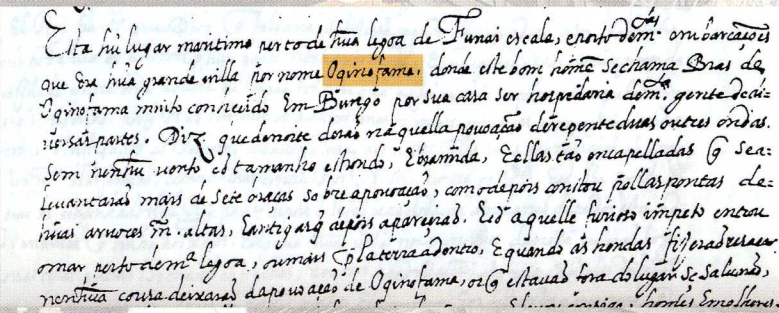 Està hũ lugar maritimo perto de hũa legoa de Funai escala, e porto de m.tas embarcações
que era hũa grande villa por nome Oquinofama, donde este bom homẽ se chama Bras de
Oquinofama muito connecido Em Bungo por sua casa ser hospedaria de m.ta gente de di-
versas partes. Diz que de noite derão na quella povoação de repente duas ou tres ondas
Sem nenhũ vento es tamanho estrondo, E tellas tão encapelladas q̃ Se a-
levantarão mais de sete braças sobre a povoação, como depois constou pollas pontas de
huas arvores m. altas, depois aparecião. E cõ aquelle furioso impeto entrou
o mar perto de m.ª legoa, ou mais pla terra a dentro, E quando as hondas
nenhũa cousa deixarão da povoação de Oquinofama, os q̃ estavão fora do lugar, se salvarão,
homẽs E molheres